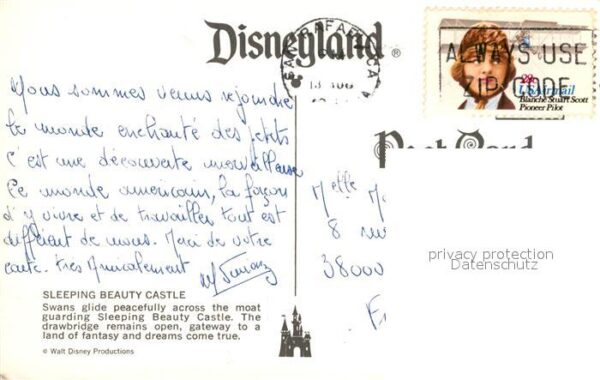 Disneyland®
SAN RAFAEL CA
13 AUG
ALWAYS USE
ZIP CODE
28c
USAirmail
Blanche Stuart Scott
Pioneer Pilot
Post Card
Nous sommes venus rejoindre
le monde enchanté des petits
C'est une découverte merveilleuse
Ce monde américain, la façon
d'y vivre et de travailler tout est
différent de nous. Merci de votre
carte. Très Amicalement
Melle
8
38000
privacy protection
Datenschutz
SLEEPING BEAUTY CASTLE
Swans glide peacefully across the moat
guarding Sleeping Beauty Castle. The
drawbridge remains open, gateway to a
land of fantasy and dreams come true.
© Walt Disney Productions